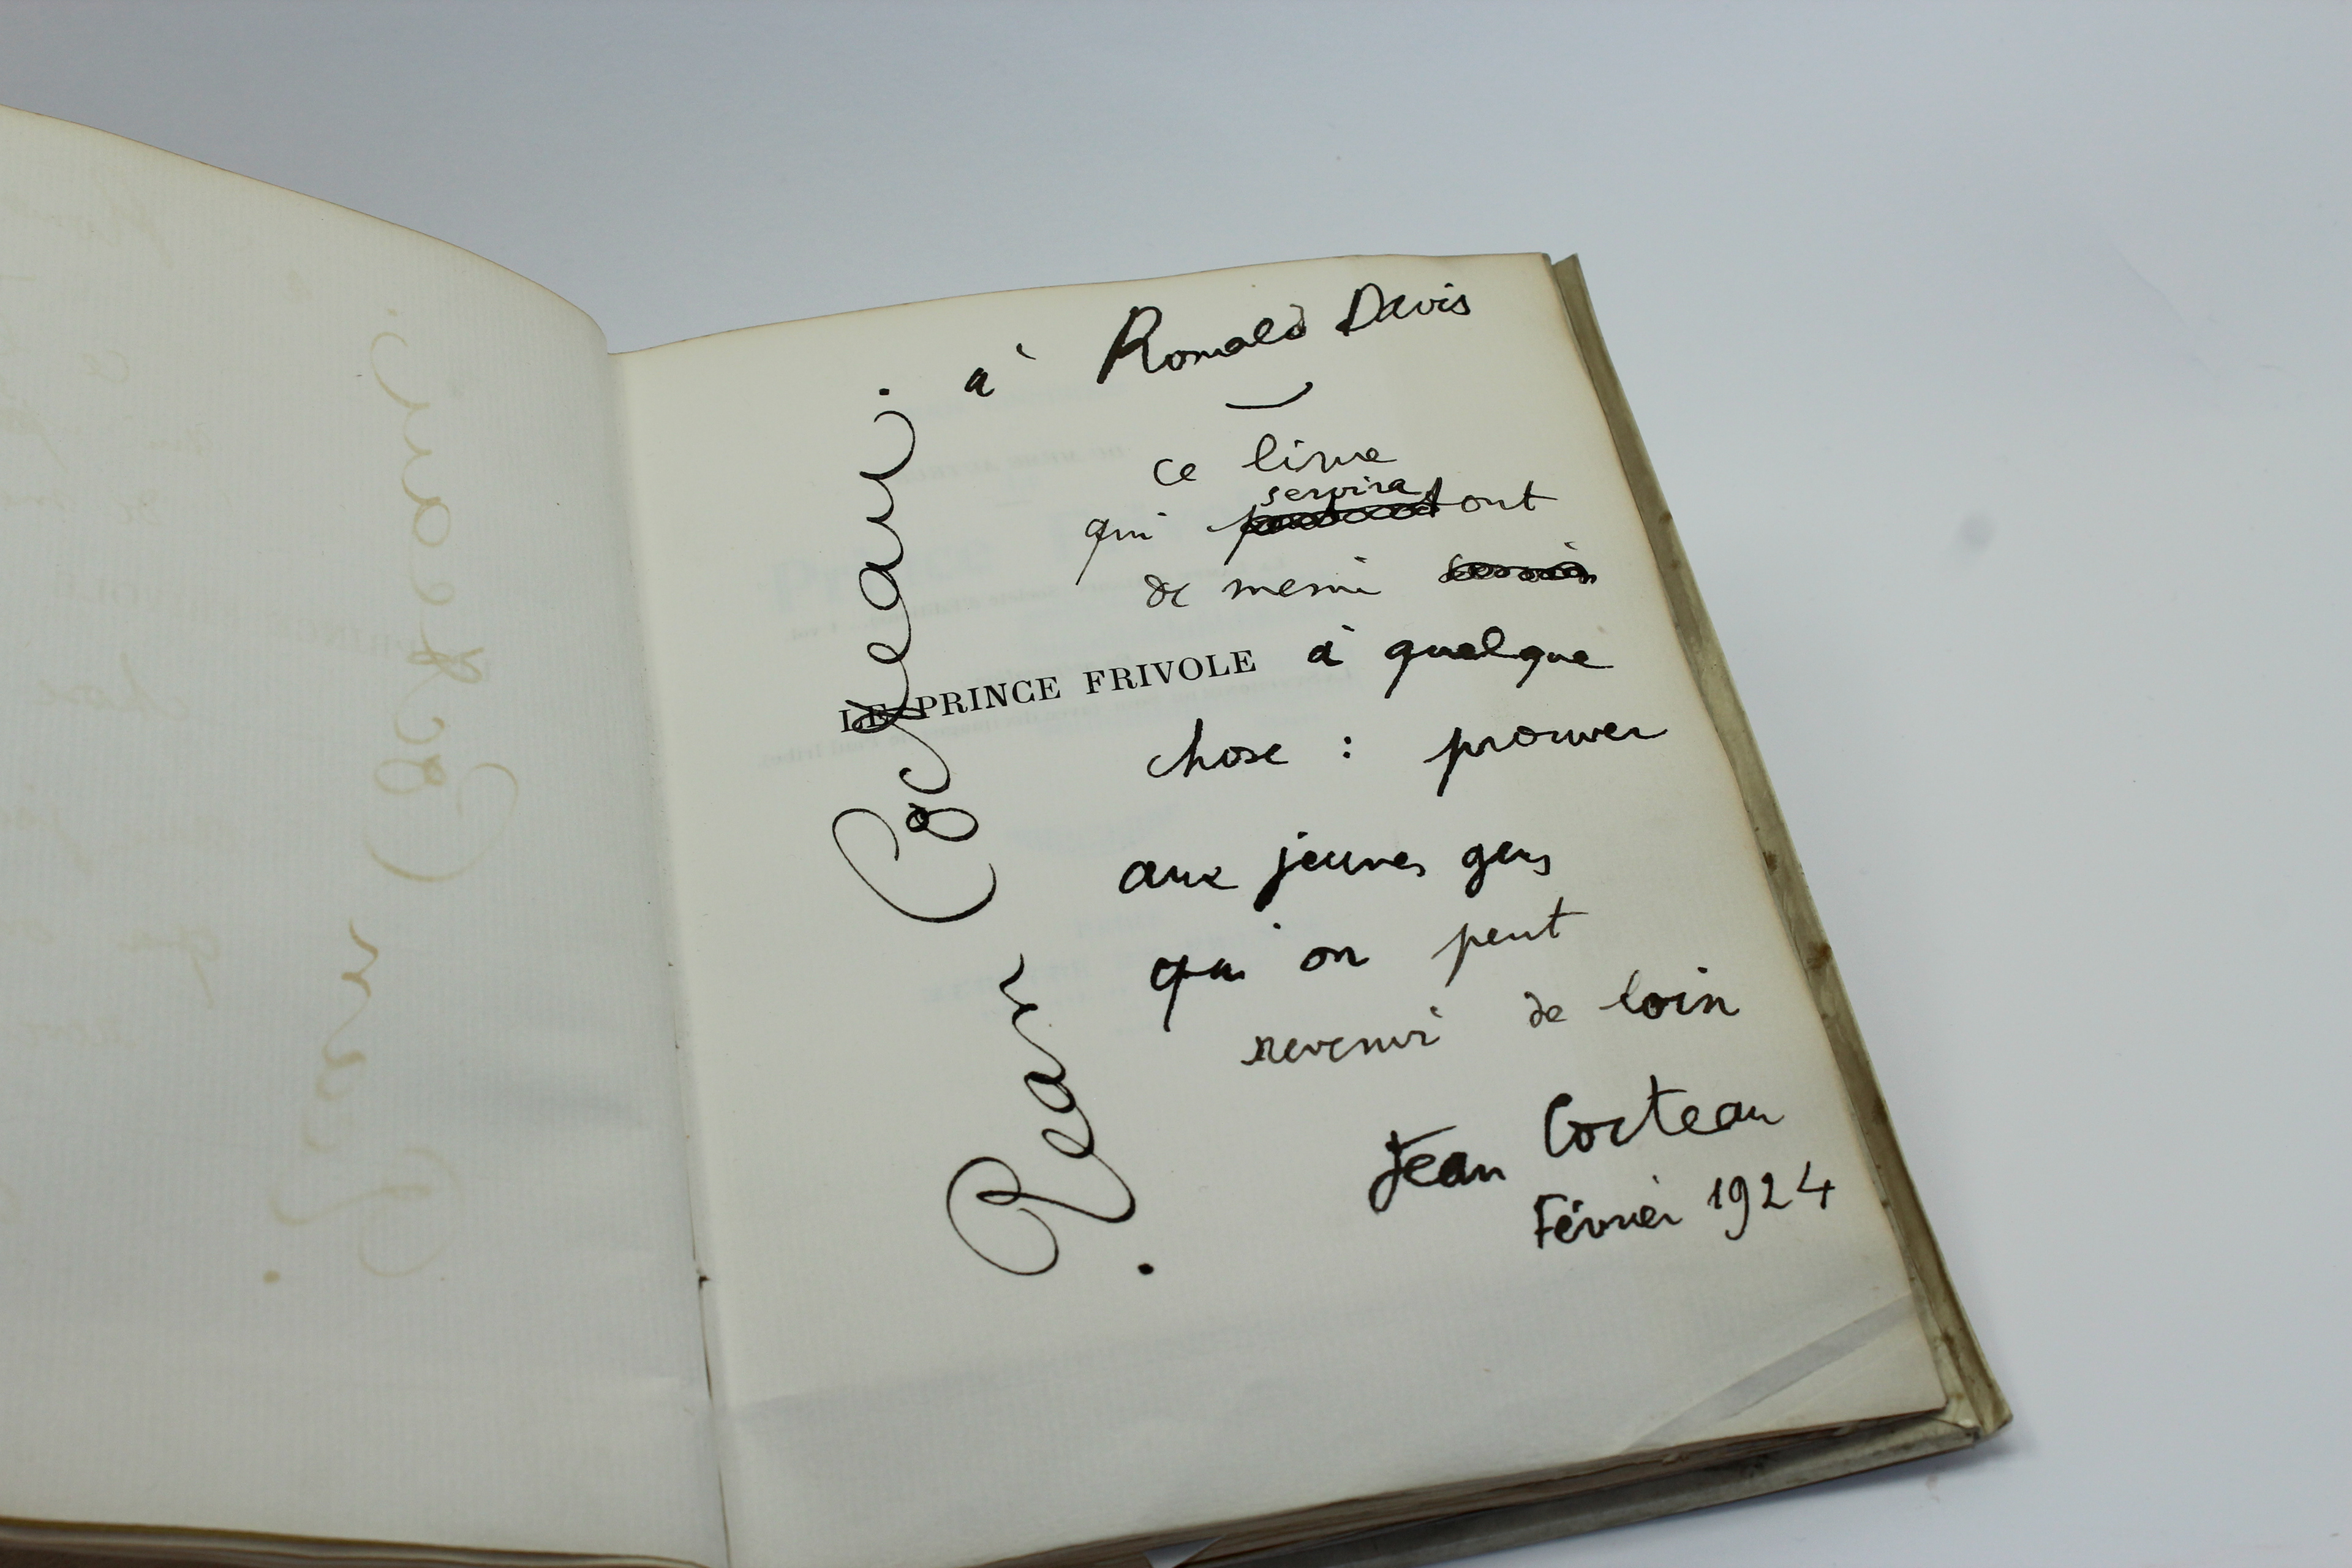 à Ronald Davis
ce livre
servira
qui tout
de meme
LE PRINCE FRIVOLE à quelque
chose : prouver
aux jeunes gens
qu'on peut
revenir de loin
Jean Cocteau
Février 1924
Jean Cocteau.